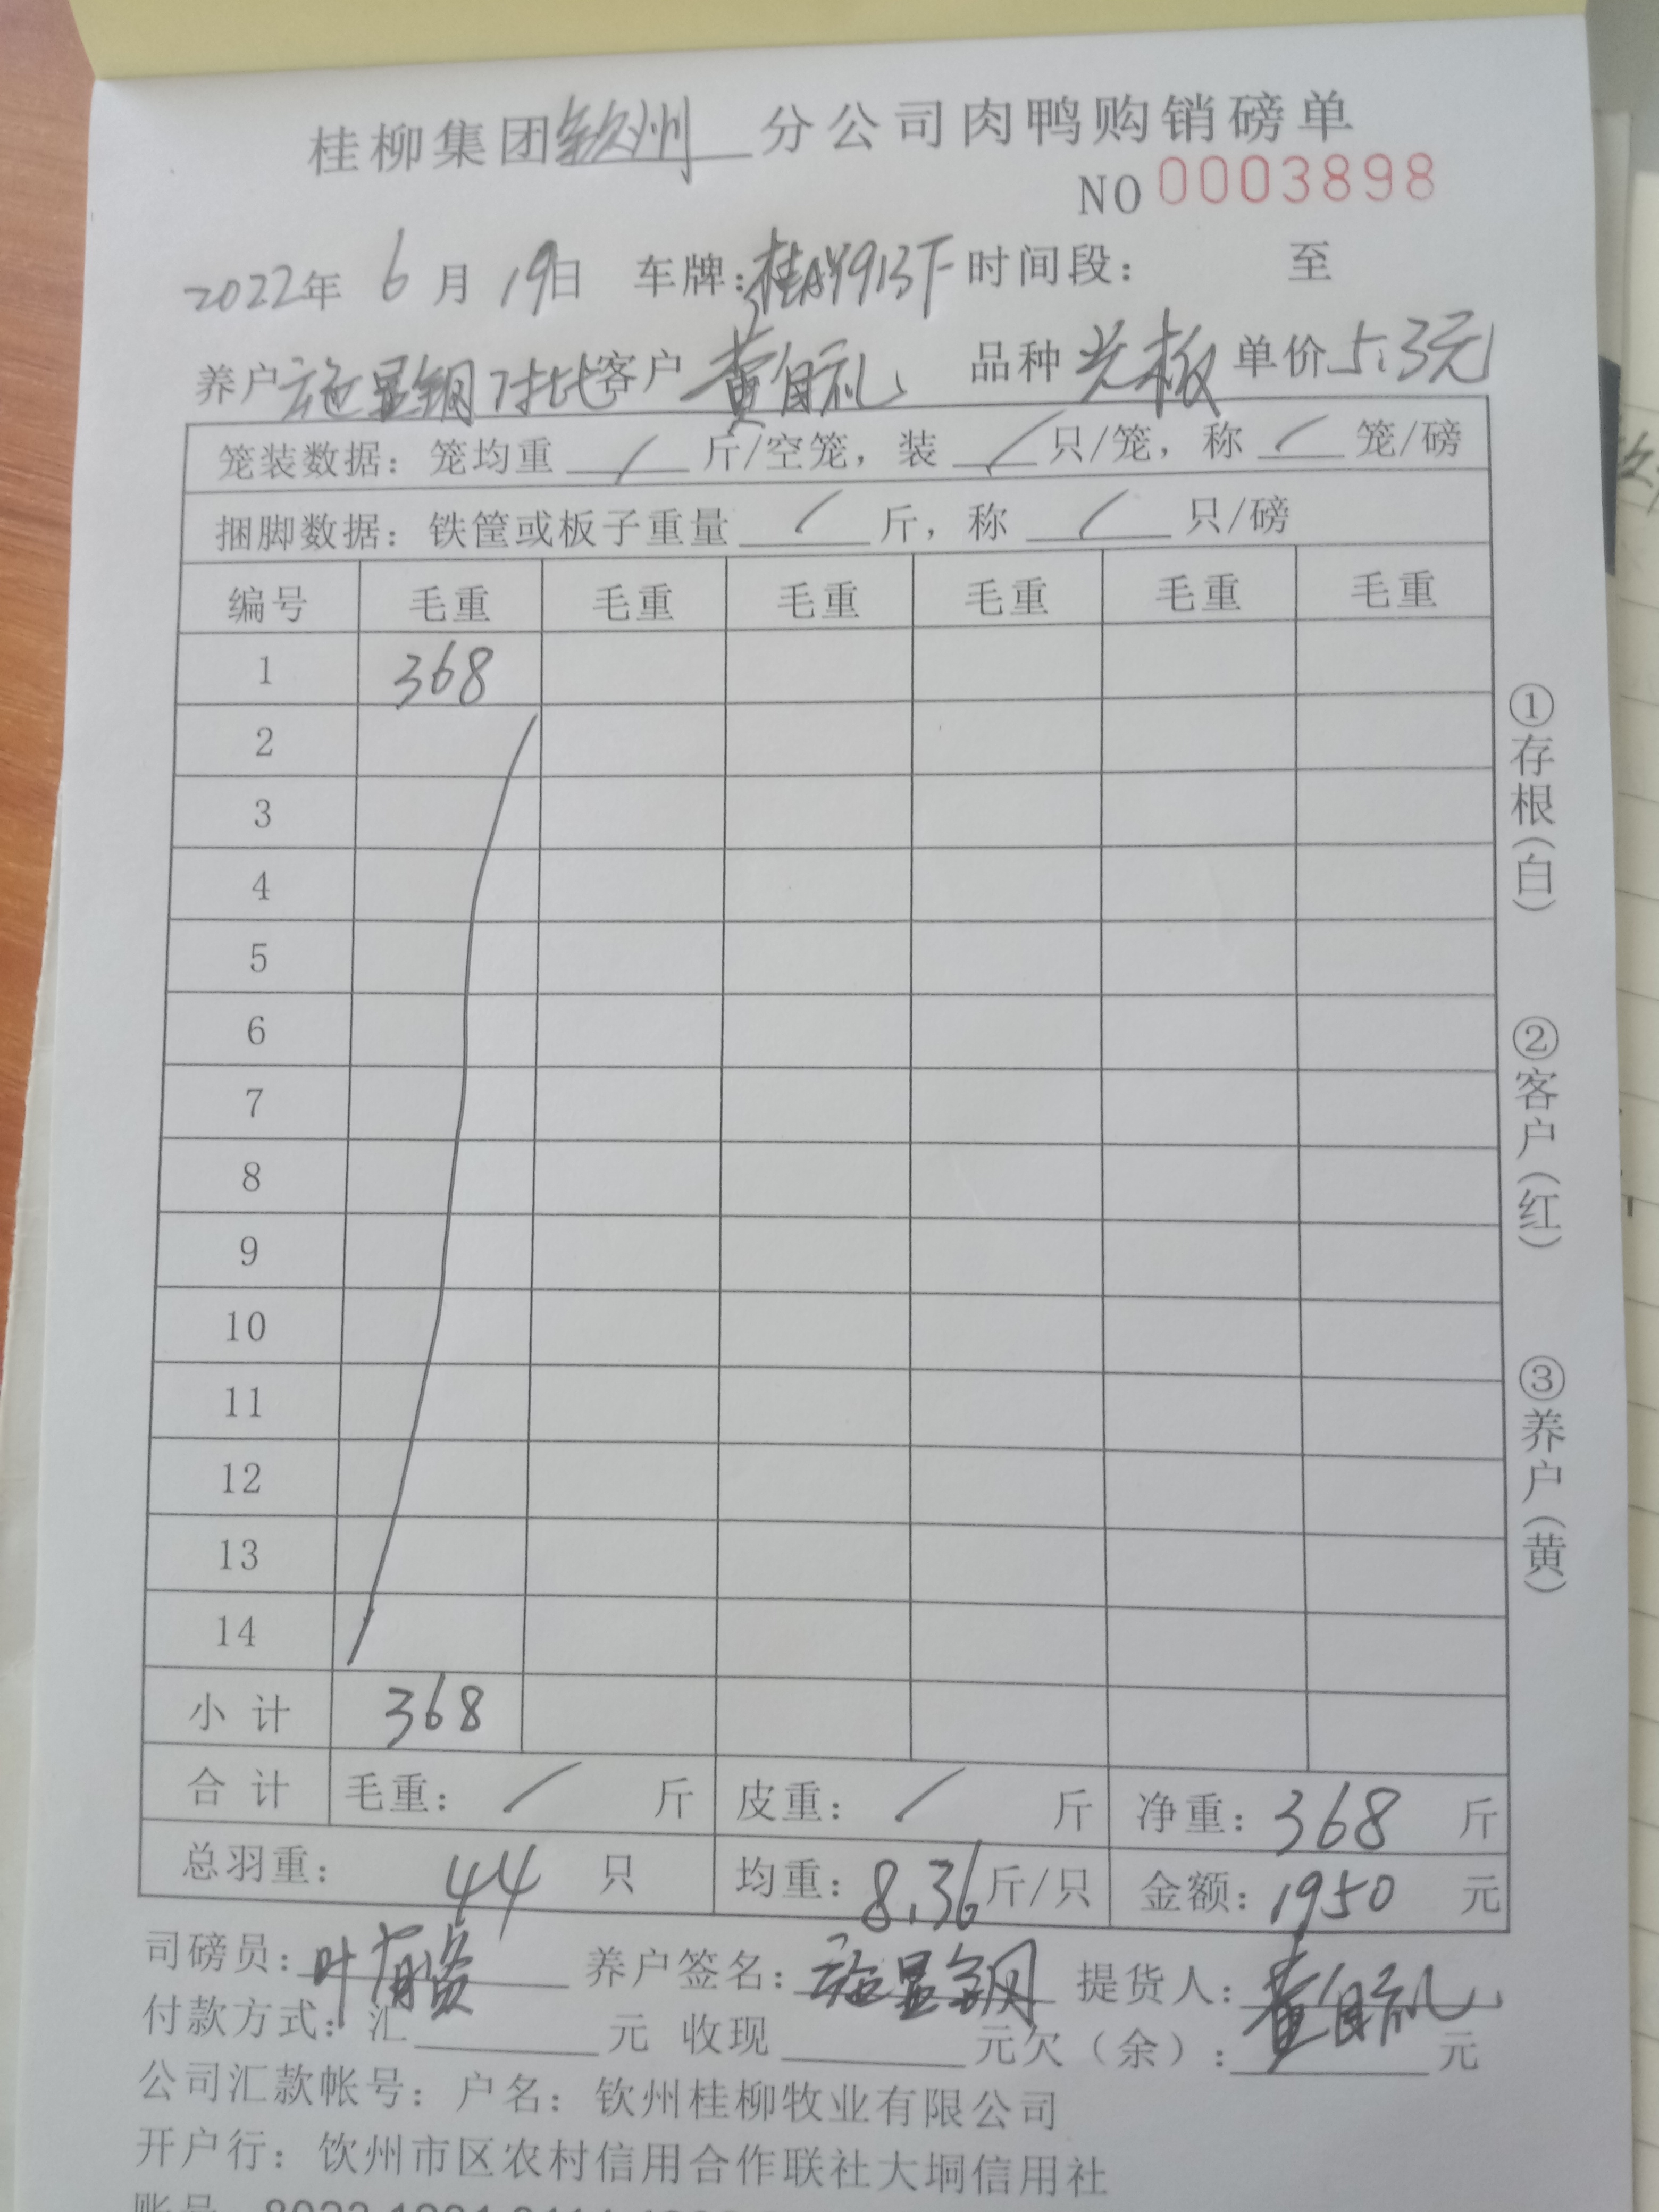 桂柳集团钦州分公司肉鸭购销磅单
NO 0003898
2022年 6月 19日 车牌: 时间段: 至
养户 施显钢 对比 客户 黄自礼 品种 光板 单价 5.3元
笼装数据: 笼均重 / 斤/空笼, 装 / 只/笼, 称 / 笼/磅
捆脚数据: 铁筐或板子重量 / 斤, 称 / 只/磅
编号 毛重 毛重 毛重 毛重 毛重 毛重
1 368
2
3
4
5
6
7
8
9
10
11
12
13
14
小计 368
合计 毛重: / 斤 皮重: / 斤 净重: 368 斤
总羽重: 44 只 均重: 8.36 斤/只 金额: 1950 元
司磅员: 叶 养户签名: 施显钢 提货人: 黄自礼
付款方式: 汇 元 收现 元欠(余): 元
公司汇款帐号: 户名: 钦州桂柳牧业有限公司
开户行: 饮州市区农村信用合作联社大垌信用社
①存根(白)
②客户(红)
③养户(黄)